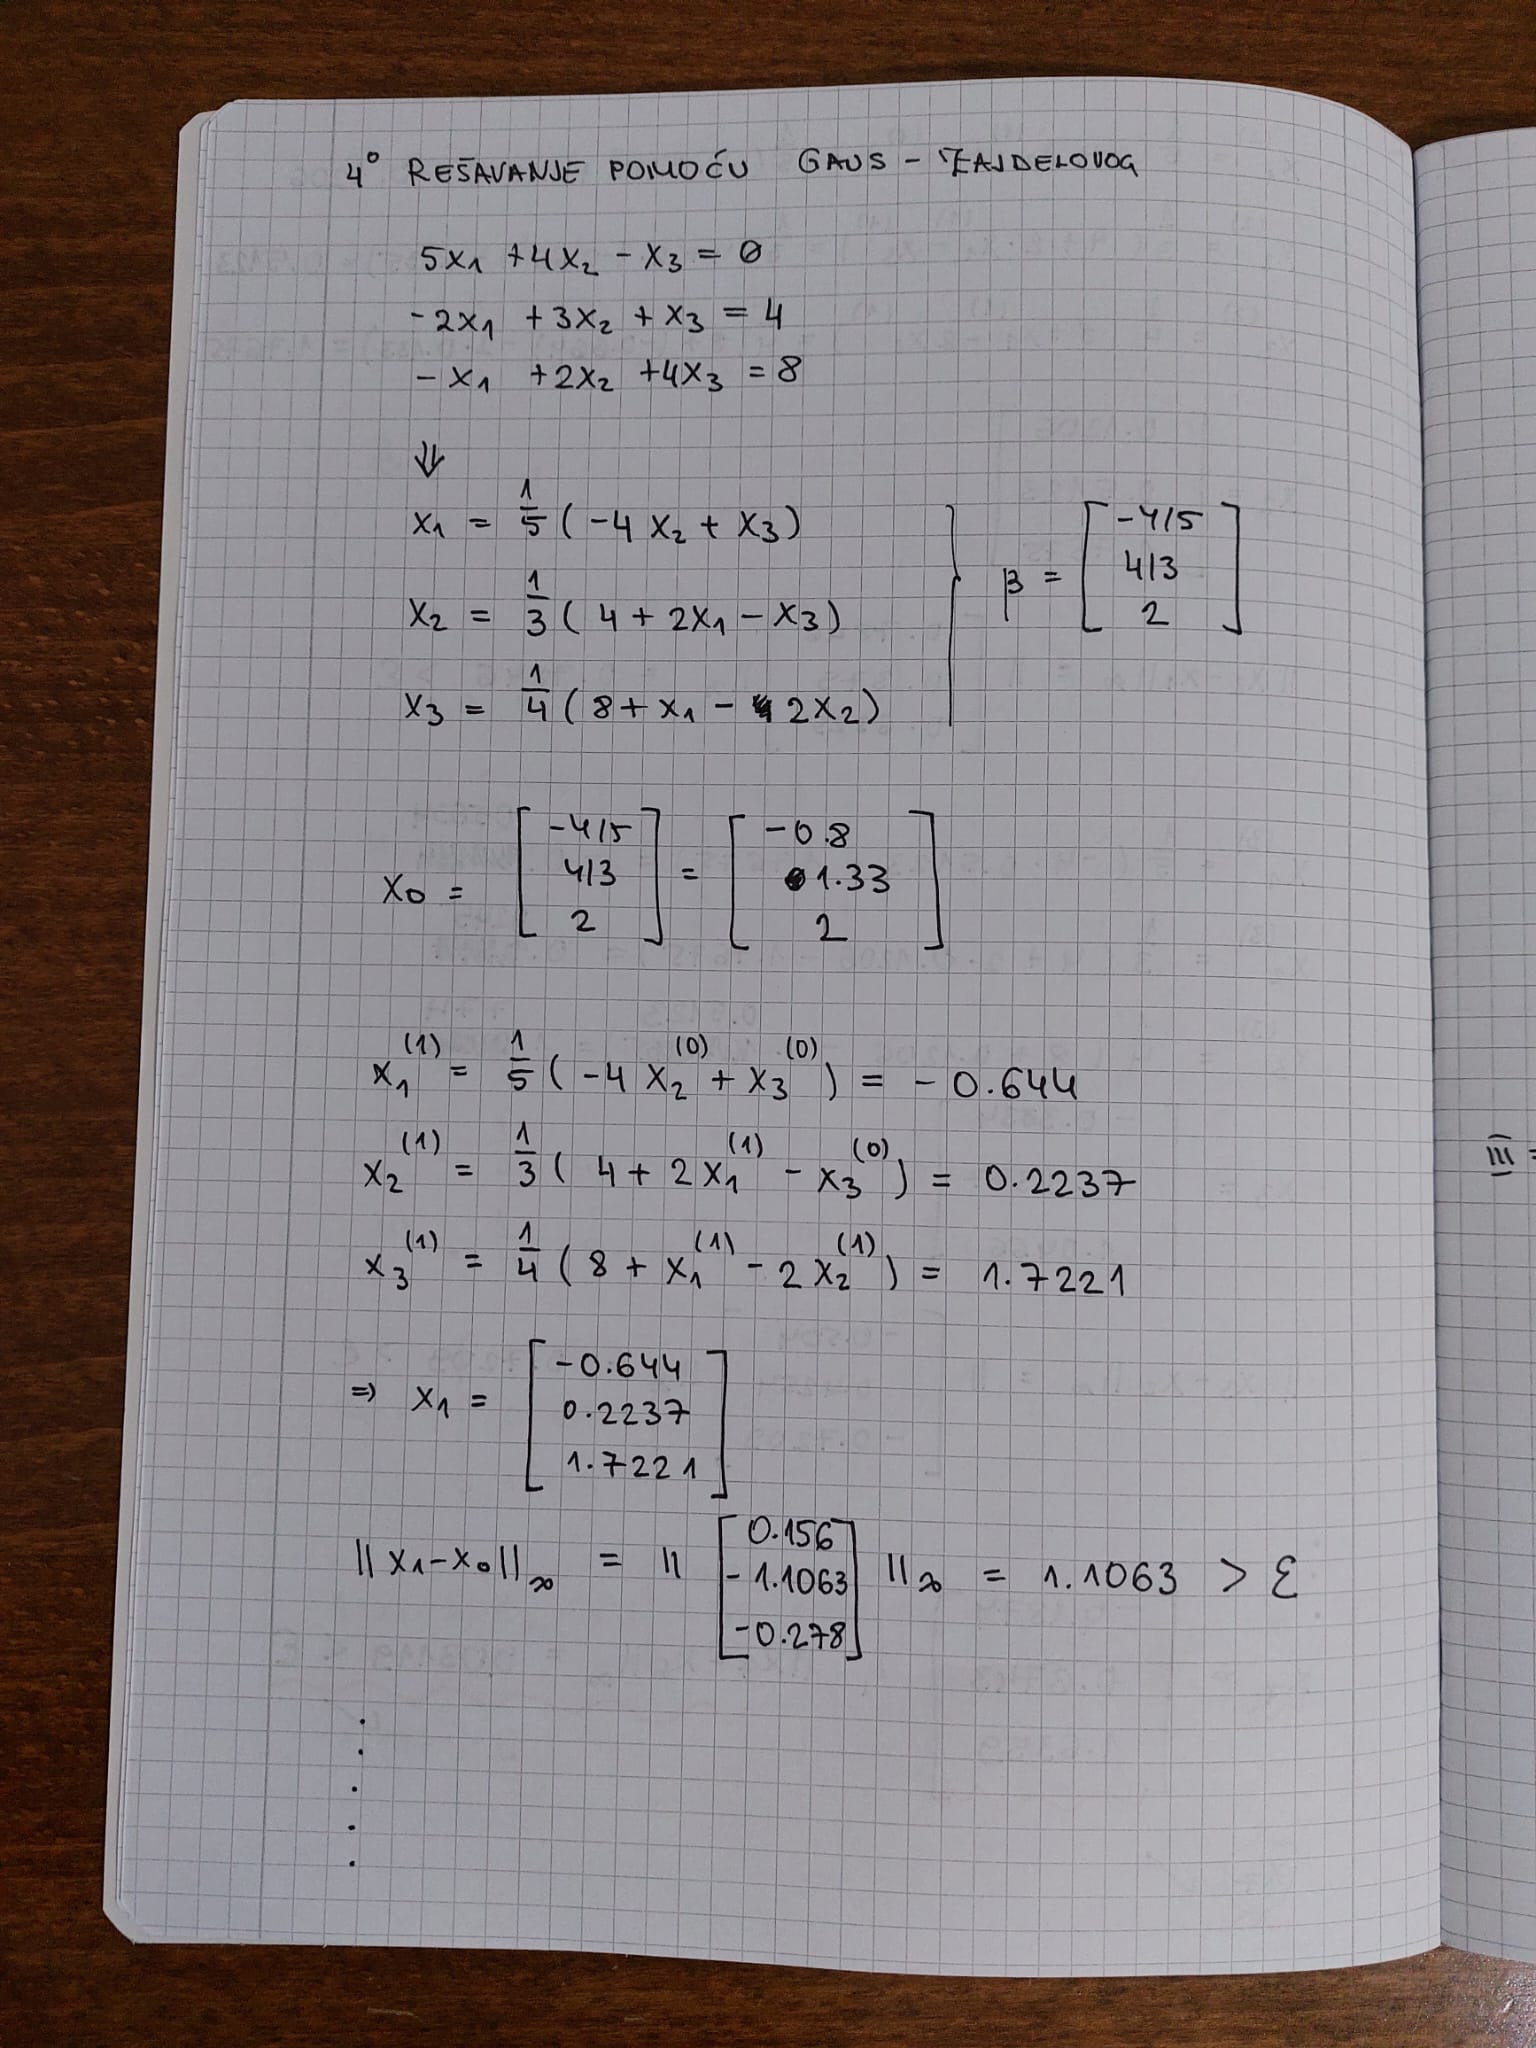 4° REŠAVANJE POMOĆU GAUS - ZAJDELOVOG
5x₁ + 4x₂ - x₃ = 0
-2x₁ + 3x₂ + x₃ = 4
-x₁ + 2x₂ + 4x₃ = 8
⇓
x₁ = 1/5 (-4x₂ + x₃)
x₂ = 1/3 (4 + 2x₁ - x₃)
x₃ = 1/4 (8 + x₁ - 2x₂)
β = [-4/5 4/3 2]
x₀ = [-4/5 4/3 2] = [-0.8 1.33 2]
x₁⁽¹⁾ = 1/5 (-4x₂⁽⁰⁾ + x₃⁽⁰⁾) = -0.644
x₂⁽¹⁾ = 1/3 (4 + 2x₁⁽¹⁾ - x₃⁽⁰⁾) = 0.2237
x₃⁽¹⁾ = 1/4 (8 + x₁⁽¹⁾ - 2x₂⁽¹⁾) = 1.7221
⇒ x₁ = [-0.644 0.2237 1.7221]
||x₁-x₀||∞ = || [0.156 -1.1063 -0.278] ||∞ = 1.1063 > ε
III =